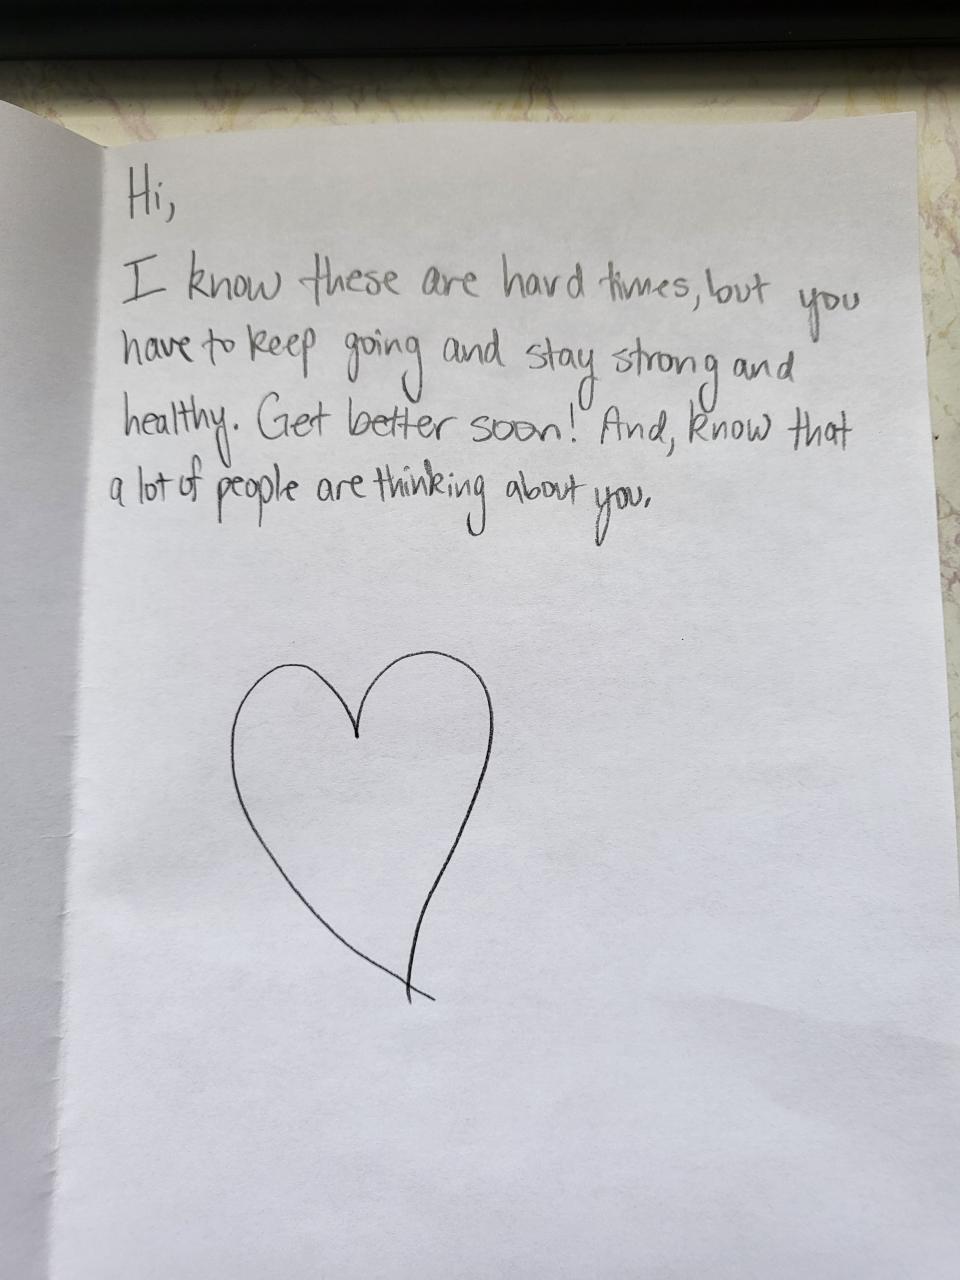 Hi,
I know these are hard times, but you
have to keep going and stay strong and
healthy. Get better soon! And, know that
a lot of people are thinking about you.